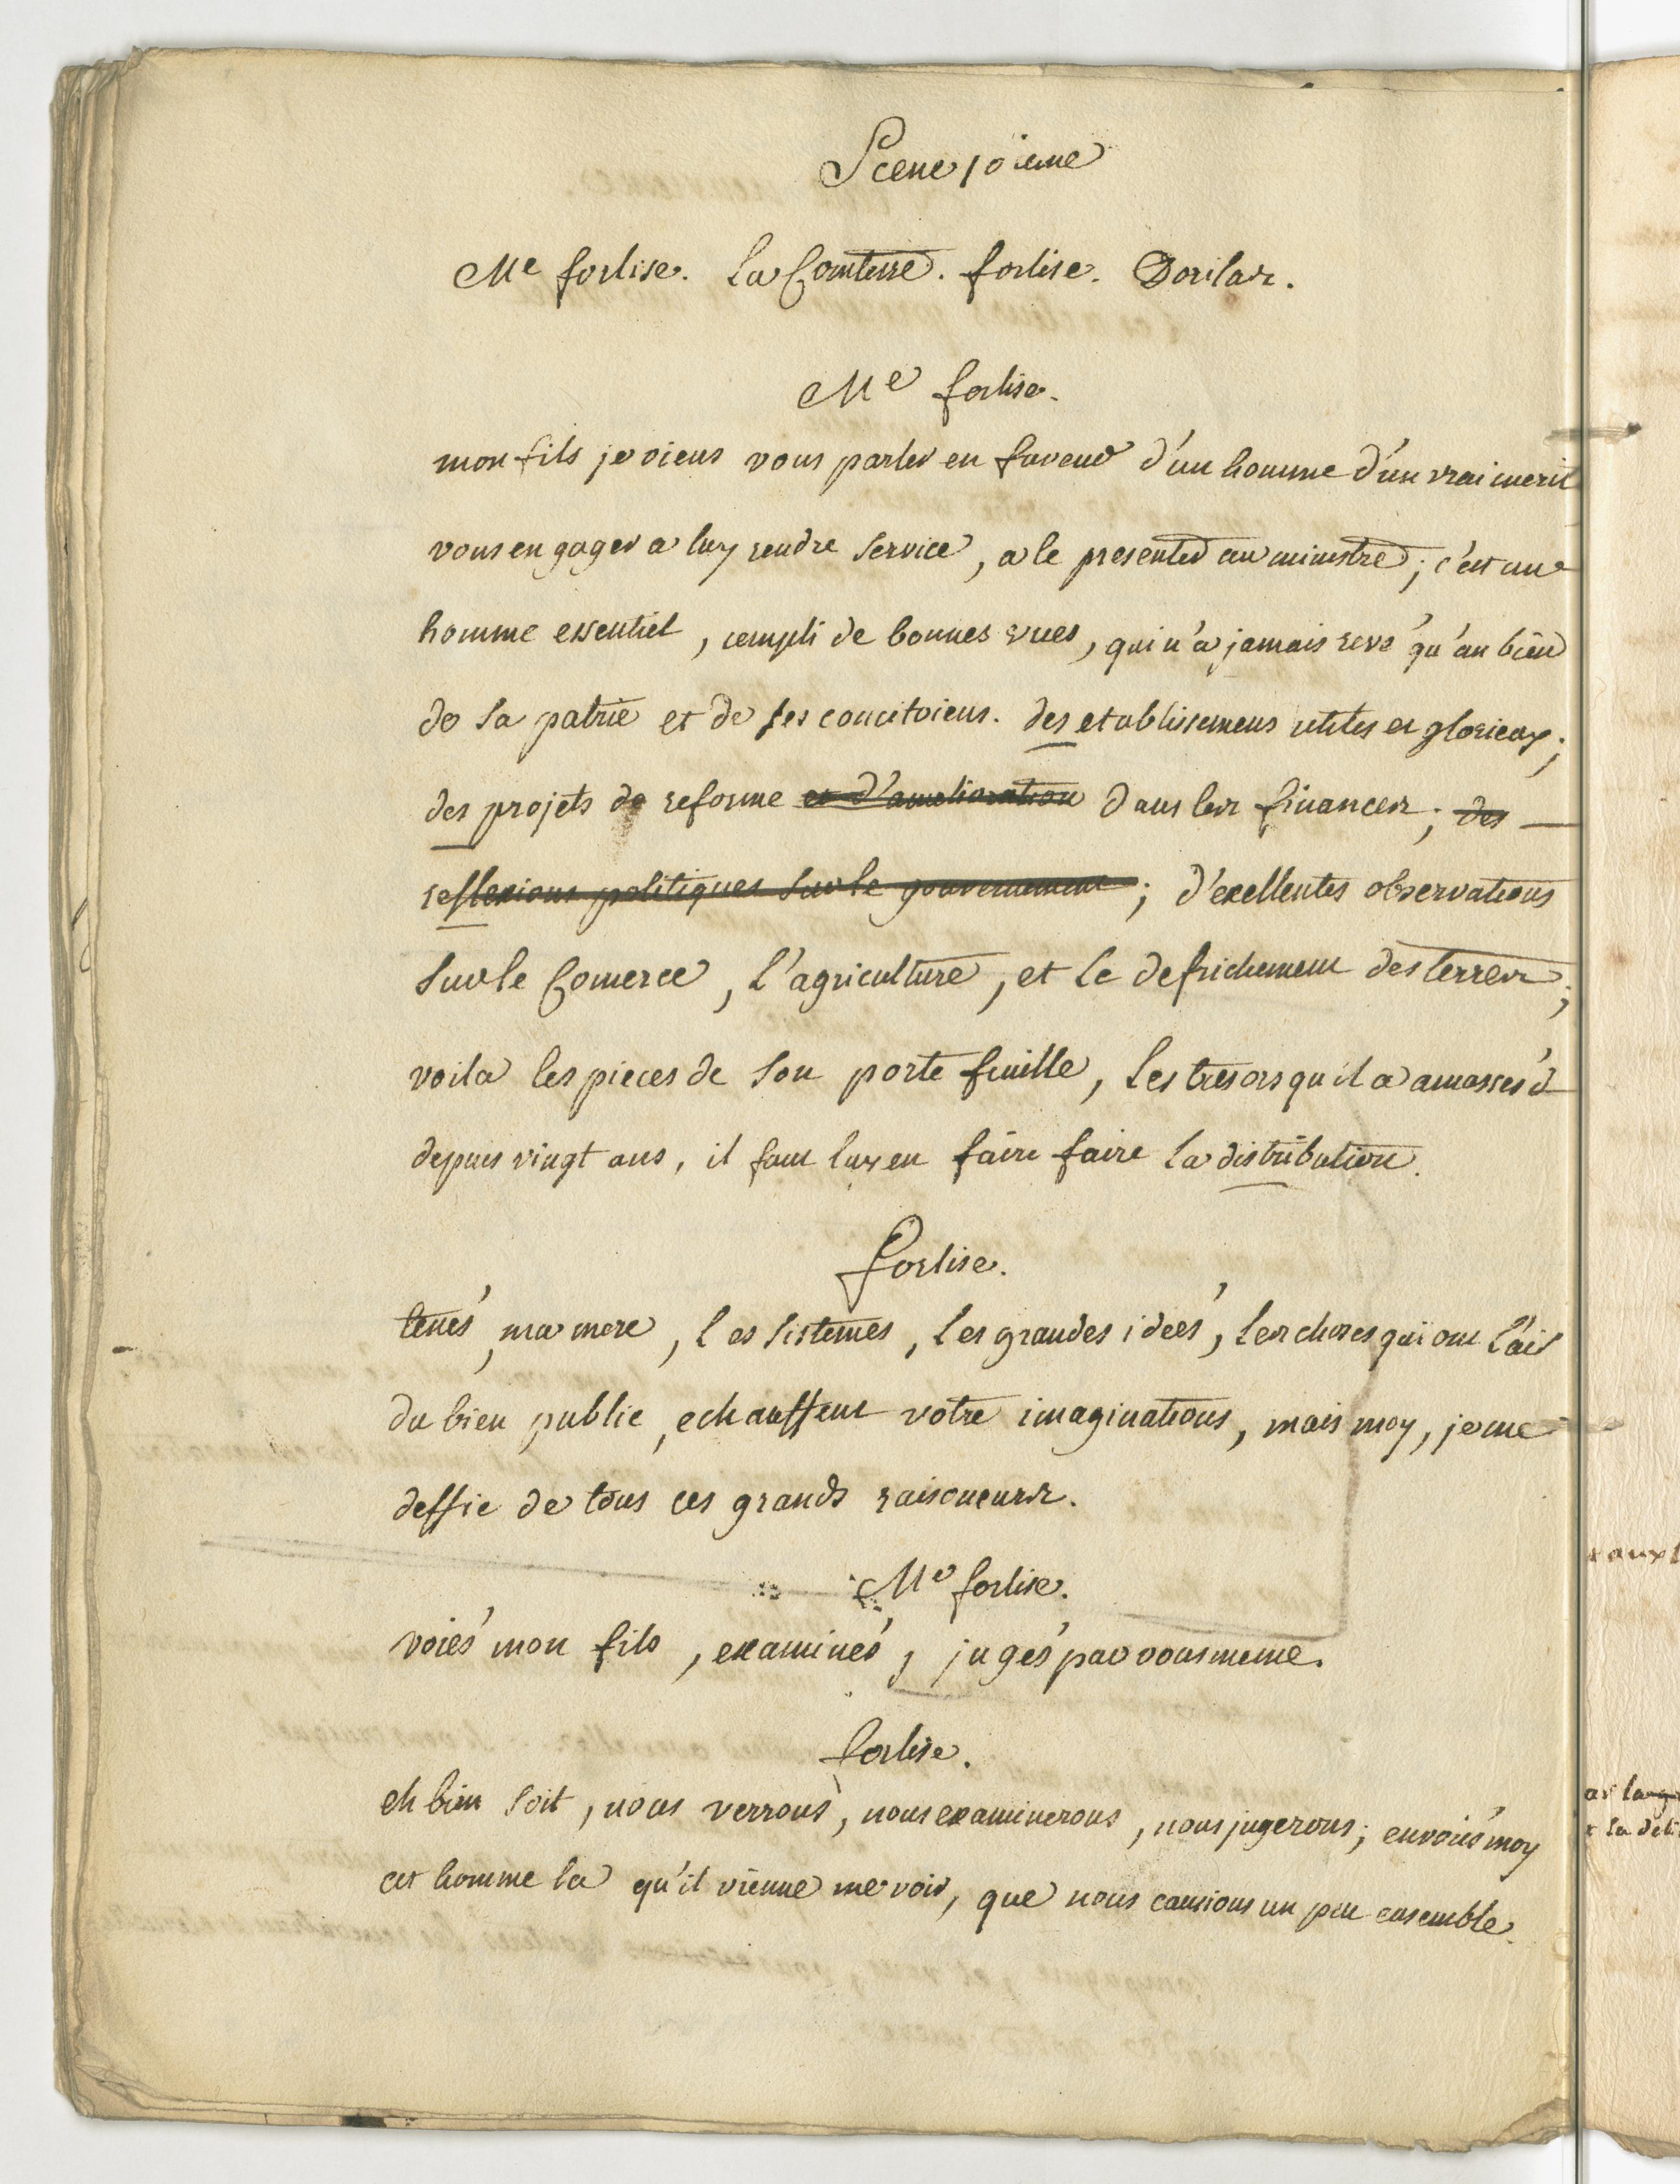 Scene 10ieme
Me forlise. La Comtesse. forlise. Dorilas.
Me forlise.
mon fils je viens vous parler en faveur d'un homme d'un vrai merite
vous engager a luy rendre service, a le presenter au ministre; c'est un
homme essentiel, rempli de bonnes vues, qui n'a jamais revé qu'au bien
de sa patrie et de ses concitoiens. des etablissemens utiles et glorieux;
des projets de reforme et d'amelioration dans les finances; des
reflexions politiques sur le gouvernement; d'exellentes observations
sur le Comerce, l'agriculture, et le defrichement des terres;
voila les pieces de son porte feuille, les tresors qu'il a amassés d
depuis vingt ans, il faut luy en faire faire la distribution.
forlise.
tenés, ma mere, les sistemes, les grandes idées, les choses qui ont l'air
du bien public, echauffent votre imaginations, mais moy, je me
deffie de tous ces grands raisoneurs.
Me forlise.
voiés mon fils, examinés, jugés par vous meme.
forlise.
eh bien soit, nous verrons, nous examinerons, nous jugerons; envoiés moy
cet homme la qu'il vienne me voir, que nous causions un peu ensemble.